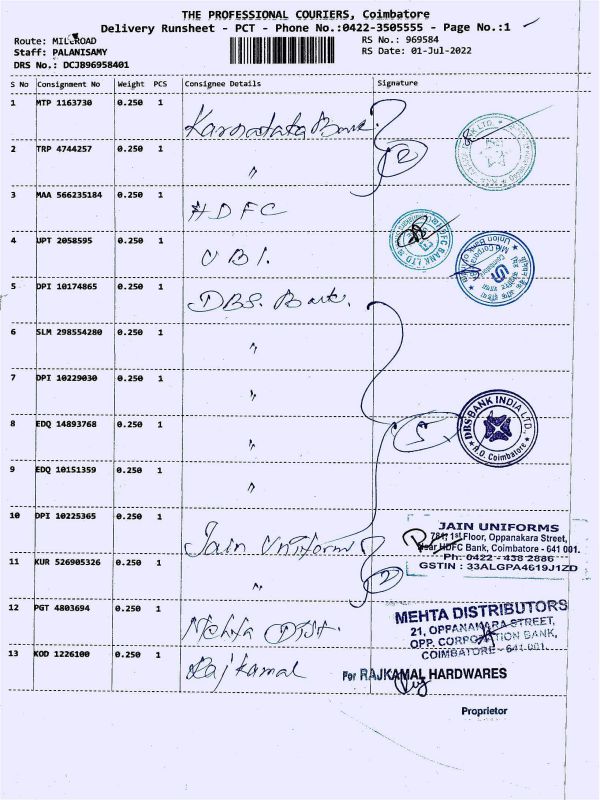 THE PROFESSIONAL COURIERS, Coimbatore
Delivery Runsheet - PCT - Phone No.:0422-3505555 - Page No.:1
Route: MILLROAD
RS No.: 969584
Staff: PALANISAMY
RS Date: 01-Jul-2022
DRS No.: DCJB96958401
S No Consignment No Weight PCS Consignee Details Signature
1 MTP 1163730 0.250 1 Karnataka Bank
2 TRP 4744257 0.250 1 "
2
3 MAA 566235184 0.250 1 HDFC
4 UPT 2058595 0.250 1 UBI.
HDFC BANK LTD
Union Bank of
5 DPI 10174865 0.250 1 DBS. Bank.
6 SLM 298554280 0.250 1 "
7 DPI 10229030 0.250 1 "
8 EDQ 14893768 0.250 1 "
5
DBS BANK INDIA LTD.,
R.O. Coimbatore
9 EDQ 10151359 0.250 1 "
10 DPI 10225365 0.250 1 Jain Uniform
JAIN UNIFORMS
1st Floor, Oppanakara Street,
Near HDFC Bank, Coimbatore - 641 001.
Ph: 0422 - 438 2886
GSTIN : 33ALGPA4619J1ZD
11 KUR 526905326 0.250 1 "
2
12 PGT 4803694 0.250 1 Mehta Dist.
MEHTA DISTRIBUTORS
21, OPPANAKARA STREET,
OPP. CORPORATION BANK,
COIMBATORE - 641 001.
13 KOD 1226100 0.250 1 Rajkamal
For RAJKAMAL HARDWARES
Proprietor